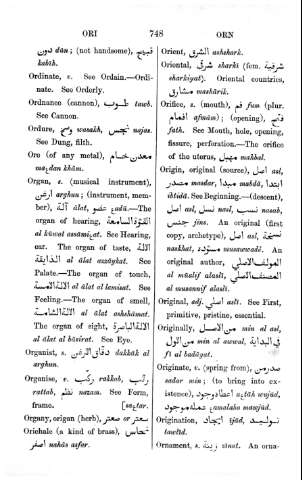 ORI 748 ORN
دون dūn; (not handsome), قبيح
kabīh.
Ordinate, v. See Ordain.—Ordi-
nate. See Orderly.
Ordnance (cannon), طوب tawb.
See Cannon.
Ordure, وسخ wasakh, نجس najas.
See Dung, filth.
Ore (of any metal), معدن خام
ma;dan khām.
Organ, s. (musical instrument),
ارغن arghun; (instrument, mem-
ber), آلة ālat, عضو ;adū.—The
organ of hearing, القوة السامعة
al kūwat assāmi;at. See Hearing,
ear. The organ of taste, الآلة
الذايقة al ālat azzāykat. See
Palate.—The organ of touch,
الآلة اللامسة al ālat al lamisat. See
Feeling.—The organ of smell,
الآلة الشامة al ālat ashshāmat.
The organ of sight, الآلة الباصرة
al ālat al bāsirat. See Eye.
Organist, s. دقاق الارغن dakkāk al
arghun.
Organise, v. ركّب rakkab, رتب
rattab, نظم nazam. See Form,
frame. [sa;tar.
Organy, origan (herb), صعتر or سعتر
Orichale (a kind of brass), نحاس
اصفر nahās asfar.
Orient, الشرق ashshark.
Oriental, شرقي sharki (fem. شرقية
sharkiyat). Oriental countries,
مشارق mashārik.
Orifice, s. (mouth), فم fum (plur.
افمام afmām); (opening), فتح
fath. See Month, hole, opening,
fissure, perforation.—The orifice
of the uterus, مهبل mahbal.
Origin, original (source), اصل asl,
مصدر masdar, مبدا mabdā, ابتدا
ibtidā. See Beginning.—(descent),
اصل asl, نسل nasl, نسب nasab,
جنس jins. An original (first
copy, archetype), اصل asl, نسخة
naskhat, مسوّدة musawwadā. An
original author, المولف الاصلي
al mūalif alaslī, المصنف الاصلي
al musannif alaslī.
Original, adj. اصلي aslī. See First,
primitive, pristine, essential.
Originally, من الاصل min al asl,
من الاول min al awwal, في البداية
fī al badāyat.
Originate, v. (spring from), صدر من
sadar min; (to bring into ex-
istence), اعطاه وجود a;tāh wujūd,
عمله موجود ;amalahu mawjūd.
Origination, ايجاد ījād, توليد
tawlīd.
Ornament, s. زينة zīnat. An orna-